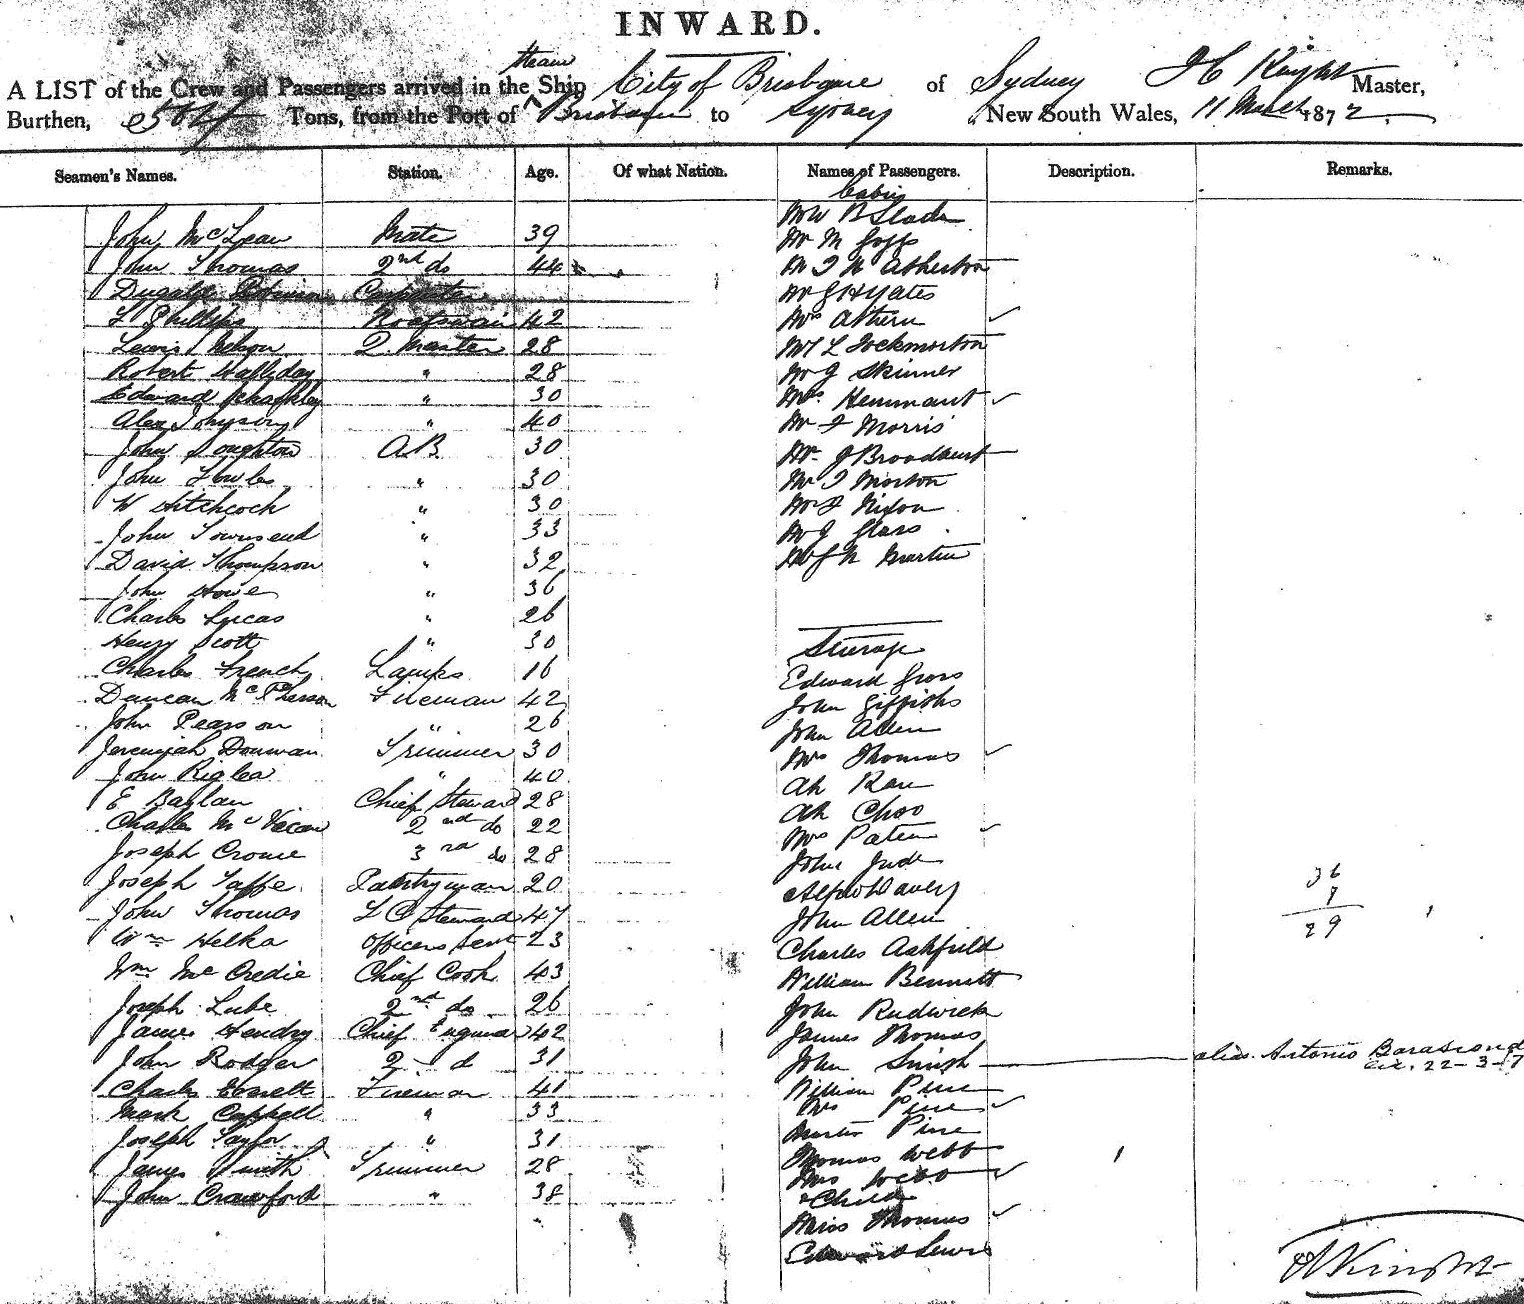 INWARD.
steam
A LIST of the Crew and Passengers arrived in the Ship City of Brisbane of Sydney J C Knight Master,
Burthen, Tons, from the Port of Brisbane to Sydney New South Wales, 11 March 1872.
Seamen's Names. Station. Age. Of what Nation. Names of Passengers. Description. Remarks.
Cabin
John McLean Mate 39
John Thomas 2nd do 44
Carpenter
L Phillips Boatswain 42
Lewis Nelson Q. Master 28
Robert Hallyday " 28
Edward " 30
Alex Johnson " 40
John A.B. 30
John Fowles " 30
W Hitchcock " 30
John Townsend " 33
David Thompson " 32
John Howe " 36
Charles Lucas " 26
Henry Scott " 30
Charles French Lamps 16
Duncan McPherson Fireman 42
John Pearson " 26
Jeremiah Trimmer 30
John Riglea " 40
E Baylan Chief Steward 28
Charles 2nd do 22
Joseph Crowe 3rd do 28
Joseph Taffe Pantryman 20
John Thomas F C Steward 47
Wm Helka Officers Servt 23
Wm McCredie Chief Cook 43
Joseph Lube 2nd do 26
James Hendry Chief Engineer 42
John Rodger 2 d 31
Charles Everett Fireman 41
Mark Cappell " 33
Joseph Taylor " 31
James Smith Trimmer 28
John Crawford " 38
Mr B Slade
Mr M Goff
Mr J N Atherton
Mr G H Yates
Mrs Athern
Mr L Tockmorton
Mr J Skinner
Mrs Hemmant
Mr J Morris
Mr J Broadhurst
Mr J Morton
Mr J Nixon
Mr J Glass
Mr J N Martin
Steerage
Edward Gross
John Giffiths
John Allen
Mrs Thomas
Ah Kan
Ah Choo
Mrs Paten
John Jude
Alfred Davey
John Allen
Charles Ashfield
William Bennett
John Rudwick
James Thomas
John Smith alias Antonio
22-3-7
William Pine
Mrs Pine
Master Pine
Thomas Webb
Mrs Webb
& Child
Miss Thomas
Edward Lewis
36
7
29
J C Knight